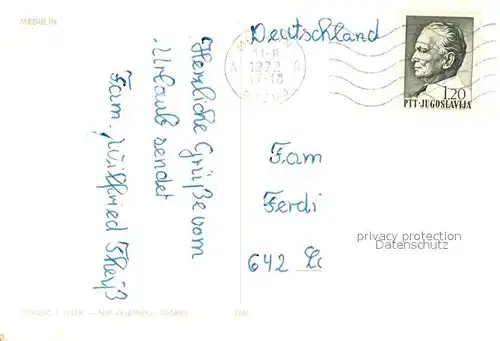 MEDULIN
Herzliche Grüße vom
Urlaub sendet
Fam. Wilfried Theiß
Deutschland
11-8
1972
17-18
1.20
PTT-JUGOSLAVIJA
Fam
Ferdi
642
privacy protection
Datenschutz